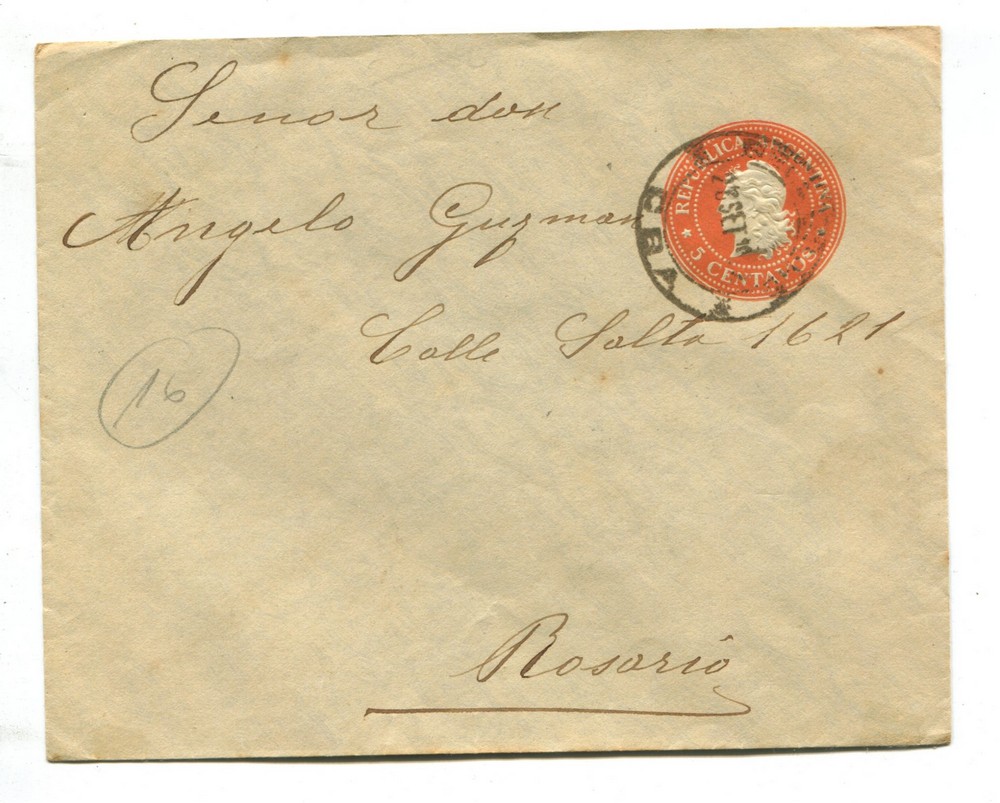 Senor don
REPUBLICA ARGENTINA
5 CENTAVOS
CBA
Angelo Guzman
Calle Salta 1621
16
Rosario